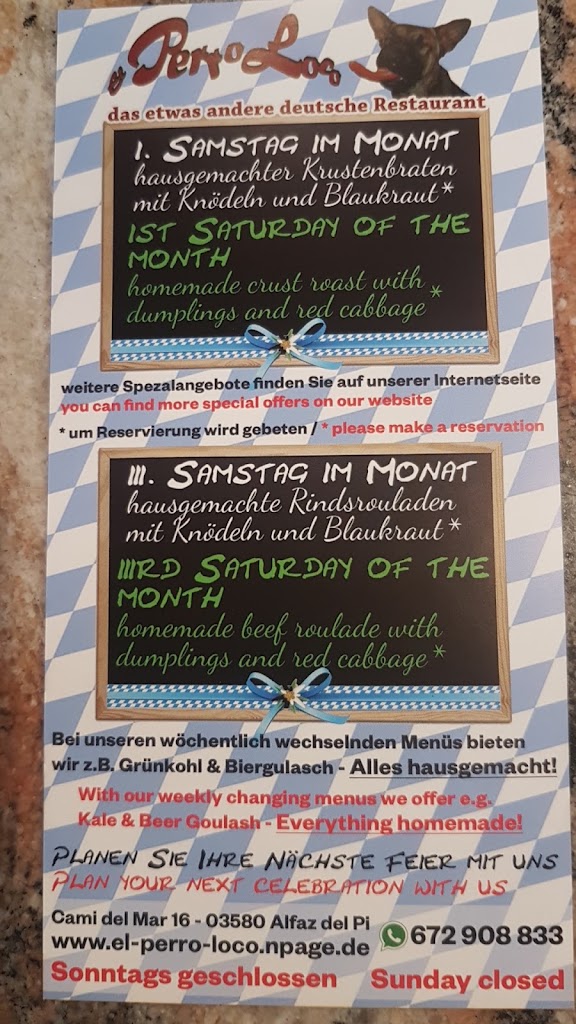 el Perro Loco
das etwas andere deutsche Restaurant
I. Samstag im Monat
hausgemachter Krustenbraten
mit Knödeln und Blaukraut*
Ist Saturday of the
month
homemade crust roast with
dumplings and red cabbage *
weitere Spezalangebote finden Sie auf unserer Internetseite
you can find more special offers on our website
* um Reservierung wird gebeten / * please make a reservation
III. Samstag im Monat
hausgemachte Rindsrouladen
mit Knödeln und Blaukraut*
IIIrd Saturday of the
month
homemade beef roulade with
dumplings and red cabbage *
Bei unseren wöchentlich wechselnden Menüs bieten
wir z.B. Grünkohl & Biergulasch - Alles hausgemacht!
With our weekly changing menus we offer e.g.
Kale & Beer Goulash - Everything homemade!
Planen Sie Ihre nächste Feier mit uns
Plan your next celebration with us
Cami del Mar 16 - 03580 Alfaz del Pi
www.el-perro-loco.npage.de 672 908 833
Sonntags geschlossen Sunday closed